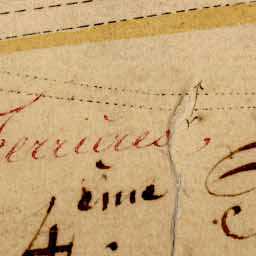 Ferrières,
ème